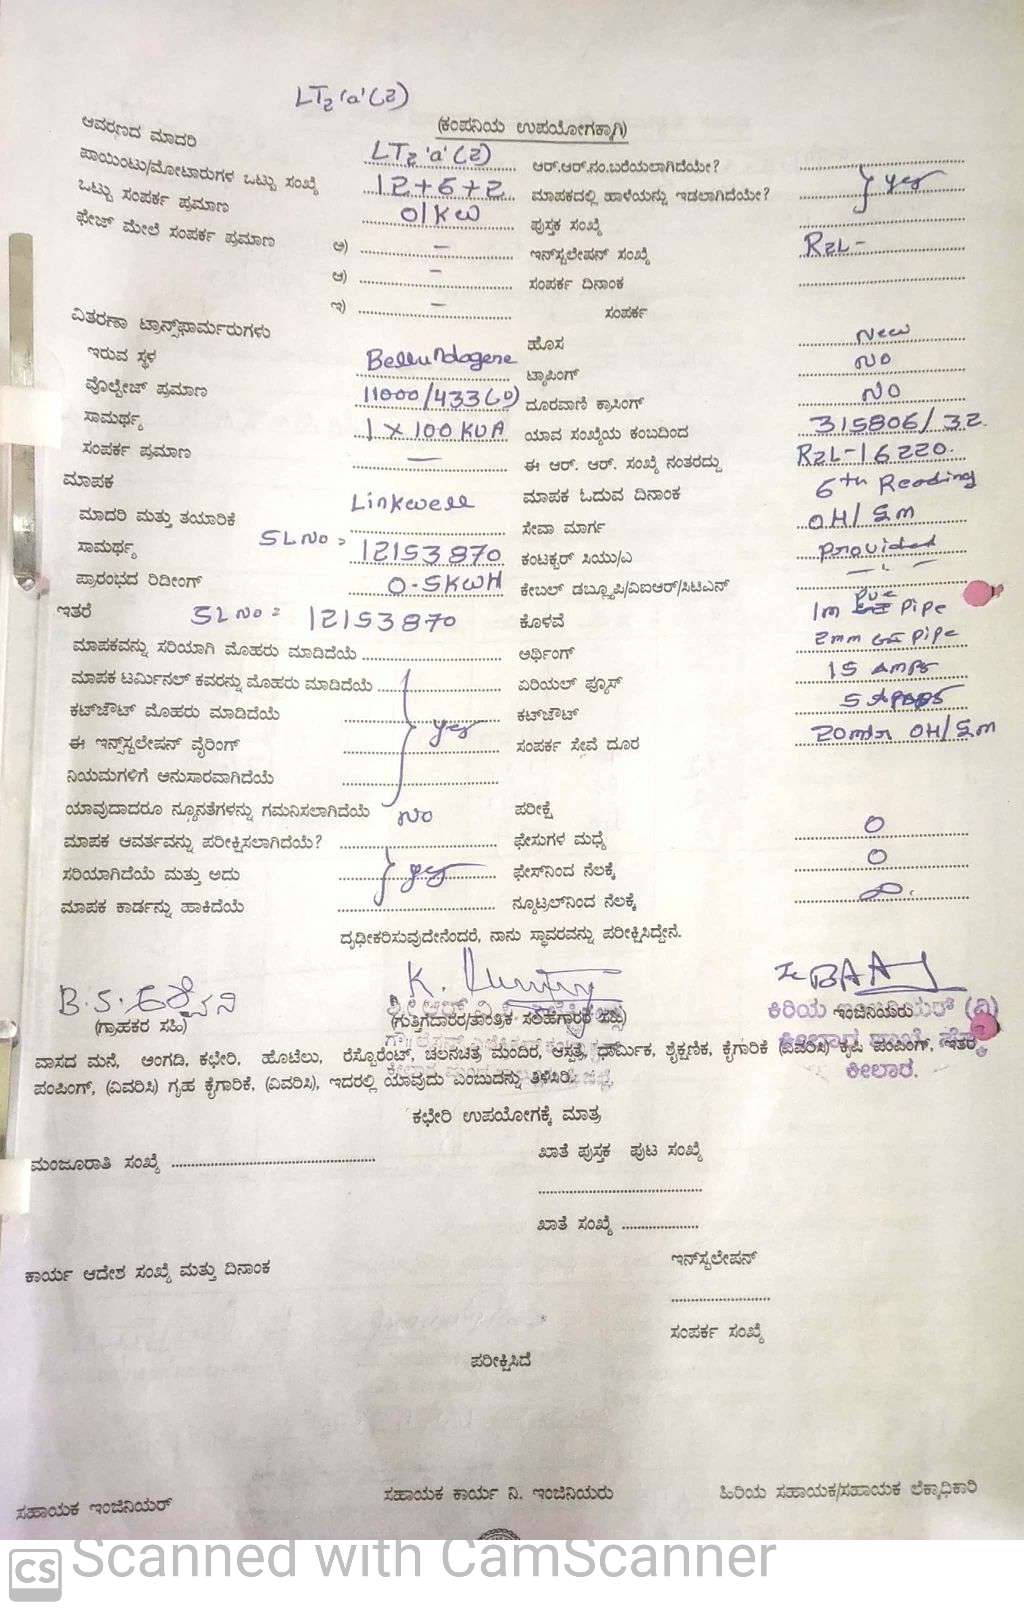 LT2 'a' (2)
(ಕಂಪನಿಯ ಉಪಯೋಗಕ್ಕಾಗಿ)
ಆವರಣದ ಮಾದರಿ LT2 'a' (2) ಆರ್.ಆರ್.ನಂ.ಬರೆಯಲಾಗಿದೆಯೇ?
ಪಾಯಿಂಟು/ಮೋಟಾರುಗಳ ಒಟ್ಟು ಸಂಖ್ಯೆ 12+6+2 ಮಾಪಕದಲ್ಲಿ ಹಾಳೆಯನ್ನು ಇಡಲಾಗಿದೆಯೇ? yes
ಒಟ್ಟು ಸಂಪರ್ಕ ಪ್ರಮಾಣ 01KW ಪುಸ್ತಕ ಸಂಖ್ಯೆ
ಫೇಜ್ ಮೇಲೆ ಸಂಪರ್ಕ ಪ್ರಮಾಣ ಅ) – ಇನ್‌ಸ್ಟಲೇಷನ್ ಸಂಖ್ಯೆ RzL-
ಆ) – ಸಂಪರ್ಕ ದಿನಾಂಕ
ಇ) – ಸಂಪರ್ಕ
ವಿತರಣಾ ಟ್ರಾನ್ಸ್‌ಫಾರ್ಮರುಗಳು ಹೊಸ New
ಇರುವ ಸ್ಥಳ ಟ್ಯಾಪಿಂಗ್ NO
ವೊಲ್ಟೇಜ್ ಪ್ರಮಾಣ 11000/433 ದೂರವಾಣಿ ಕ್ರಾಸಿಂಗ್ NO
ಸಾಮರ್ಥ್ಯ 1 X 100 KVA ಯಾವ ಸಂಖ್ಯೆಯ ಕಂಬದಿಂದ 315806/32
ಸಂಪರ್ಕ ಪ್ರಮಾಣ – ಈ ಆರ್. ಆರ್. ಸಂಖ್ಯೆ ನಂತರದ್ದು RzL-16220.
ಮಾಪಕ ಮಾಪಕ ಓದುವ ದಿನಾಂಕ 6th Reading
ಮಾದರಿ ಮತ್ತು ತಯಾರಿಕೆ Linkwell ಸೇವಾ ಮಾರ್ಗ OH/SM
ಸಾಮರ್ಥ್ಯ SL NO = 12153870 ಕಂಟಕ್ಟರ್ ಸಿಯು/ಎ Provided
ಪ್ರಾರಂಭದ ರಿಡೀಂಗ್ 0.5KWH ಕೇಬಲ್ ಡಬ್ಲ್ಯೂಪಿ/ವಿಐಆರ್/ಸಿಟಿಎನ್ –"–
ಇತರೆ SL NO = 12153870 ಕೊಳವೆ 1m PVC Pipe
ಮಾಪಕವನ್ನು ಸರಿಯಾಗಿ ಮೊಹರು ಮಾಡಿದೆಯೆ ಅರ್ಥಿಂಗ್ 2mm GI Pipe
ಮಾಪಕ ಟರ್ಮಿನಲ್ ಕವರನ್ನು ಮೊಹರು ಮಾಡಿದೆಯೆ ಏರಿಯಲ್ ಫ್ಯೂಸ್ 15 Amps
ಕಟ್‌ಜೌಟ್ ಮೊಹರು ಮಾಡಿದೆಯೆ yes ಕಟ್‌ಜೌಟ್ 5
ಈ ಇನ್ಸ್‌ಸ್ಟಲೇಷನ್ ವೈರಿಂಗ್ ಸಂಪರ್ಕ ಸೇವೆ ದೂರ 20mtr OH/SM
ನಿಯಮಗಳಿಗೆ ಅನುಸಾರವಾಗಿದೆಯೆ
ಯಾವುದಾದರೂ ನ್ಯೂನತೆಗಳನ್ನು ಗಮನಿಸಲಾಗಿದೆಯೆ NO ಪರೀಕ್ಷೆ
ಮಾಪಕ ಆವರ್ತವನ್ನು ಪರೀಕ್ಷಿಸಲಾಗಿದೆಯೆ? ಫೇಸುಗಳ ಮಧ್ಯೆ 0
ಸರಿಯಾಗಿದೆಯೆ ಮತ್ತು ಅದು yes ಫೇಸ್‌ನಿಂದ ನೆಲಕ್ಕೆ 0
ಮಾಪಕ ಕಾರ್ಡನ್ನು ಹಾಕಿದೆಯೆ ನ್ಯೂಟ್ರಲ್‌ನಿಂದ ನೆಲಕ್ಕೆ ∞.
ದೃಢೀಕರಿಸುವುದೇನೆಂದರೆ, ನಾನು ಸ್ಥಾವರವನ್ನು ಪರೀಕ್ಷಿಸಿದ್ದೇನೆ.
(ಗ್ರಾಹಕರ ಸಹಿ) (ಗುತ್ತಿಗೆದಾರರ/ತಾಂತ್ರಿಕ ಸಲಹೆಗಾರರ ಸಹಿ) ಕಿರಿಯ ಇಂಜಿನಿಯರು
ವಾಸದ ಮನೆ, ಅಂಗಡಿ, ಕಛೇರಿ, ಹೊಟೆಲು, ರೆಸ್ಟೊರೆಂಟ್, ಚಲನಚಿತ್ರ ಮಂದಿರ, ಆಸ್ಪತ್ರೆ, ಧಾರ್ಮಿಕ, ಶೈಕ್ಷಣಿಕ, ಕೈಗಾರಿಕೆ (ವಿವರಿಸಿ) ಕೃಷಿ ಪಂಪಿಂಗ್, ಇತರ
ಪಂಪಿಂಗ್, (ವಿವರಿಸಿ) ಗೃಹ ಕೈಗಾರಿಕೆ, (ವಿವರಿಸಿ), ಇದರಲ್ಲಿ ಯಾವುದು ಎಂಬುದನ್ನು ತಿಳಿಸಿರಿ. ಕೀಲಾರ.
ಕಛೇರಿ ಉಪಯೋಗಕ್ಕೆ ಮಾತ್ರ
ಮಂಜೂರಾತಿ ಸಂಖ್ಯೆ ಖಾತೆ ಪುಸ್ತಕ ಪುಟ ಸಂಖ್ಯೆ
ಖಾತೆ ಸಂಖ್ಯೆ
ಕಾರ್ಯ ಆದೇಶ ಸಂಖ್ಯೆ ಮತ್ತು ದಿನಾಂಕ ಇನ್‌ಸ್ಟಲೇಷನ್
ಸಂಪರ್ಕ ಸಂಖ್ಯೆ
ಪರೀಕ್ಷಿಸಿದೆ
ಸಹಾಯಕ ಇಂಜಿನಿಯರ್ ಸಹಾಯಕ ಕಾರ್ಯ ನಿ. ಇಂಜಿನಿಯರು ಹಿರಿಯ ಸಹಾಯಕ/ಸಹಾಯಕ ಲೆಕ್ಕಾಧಿಕಾರಿ
CS Scanned with CamScanner